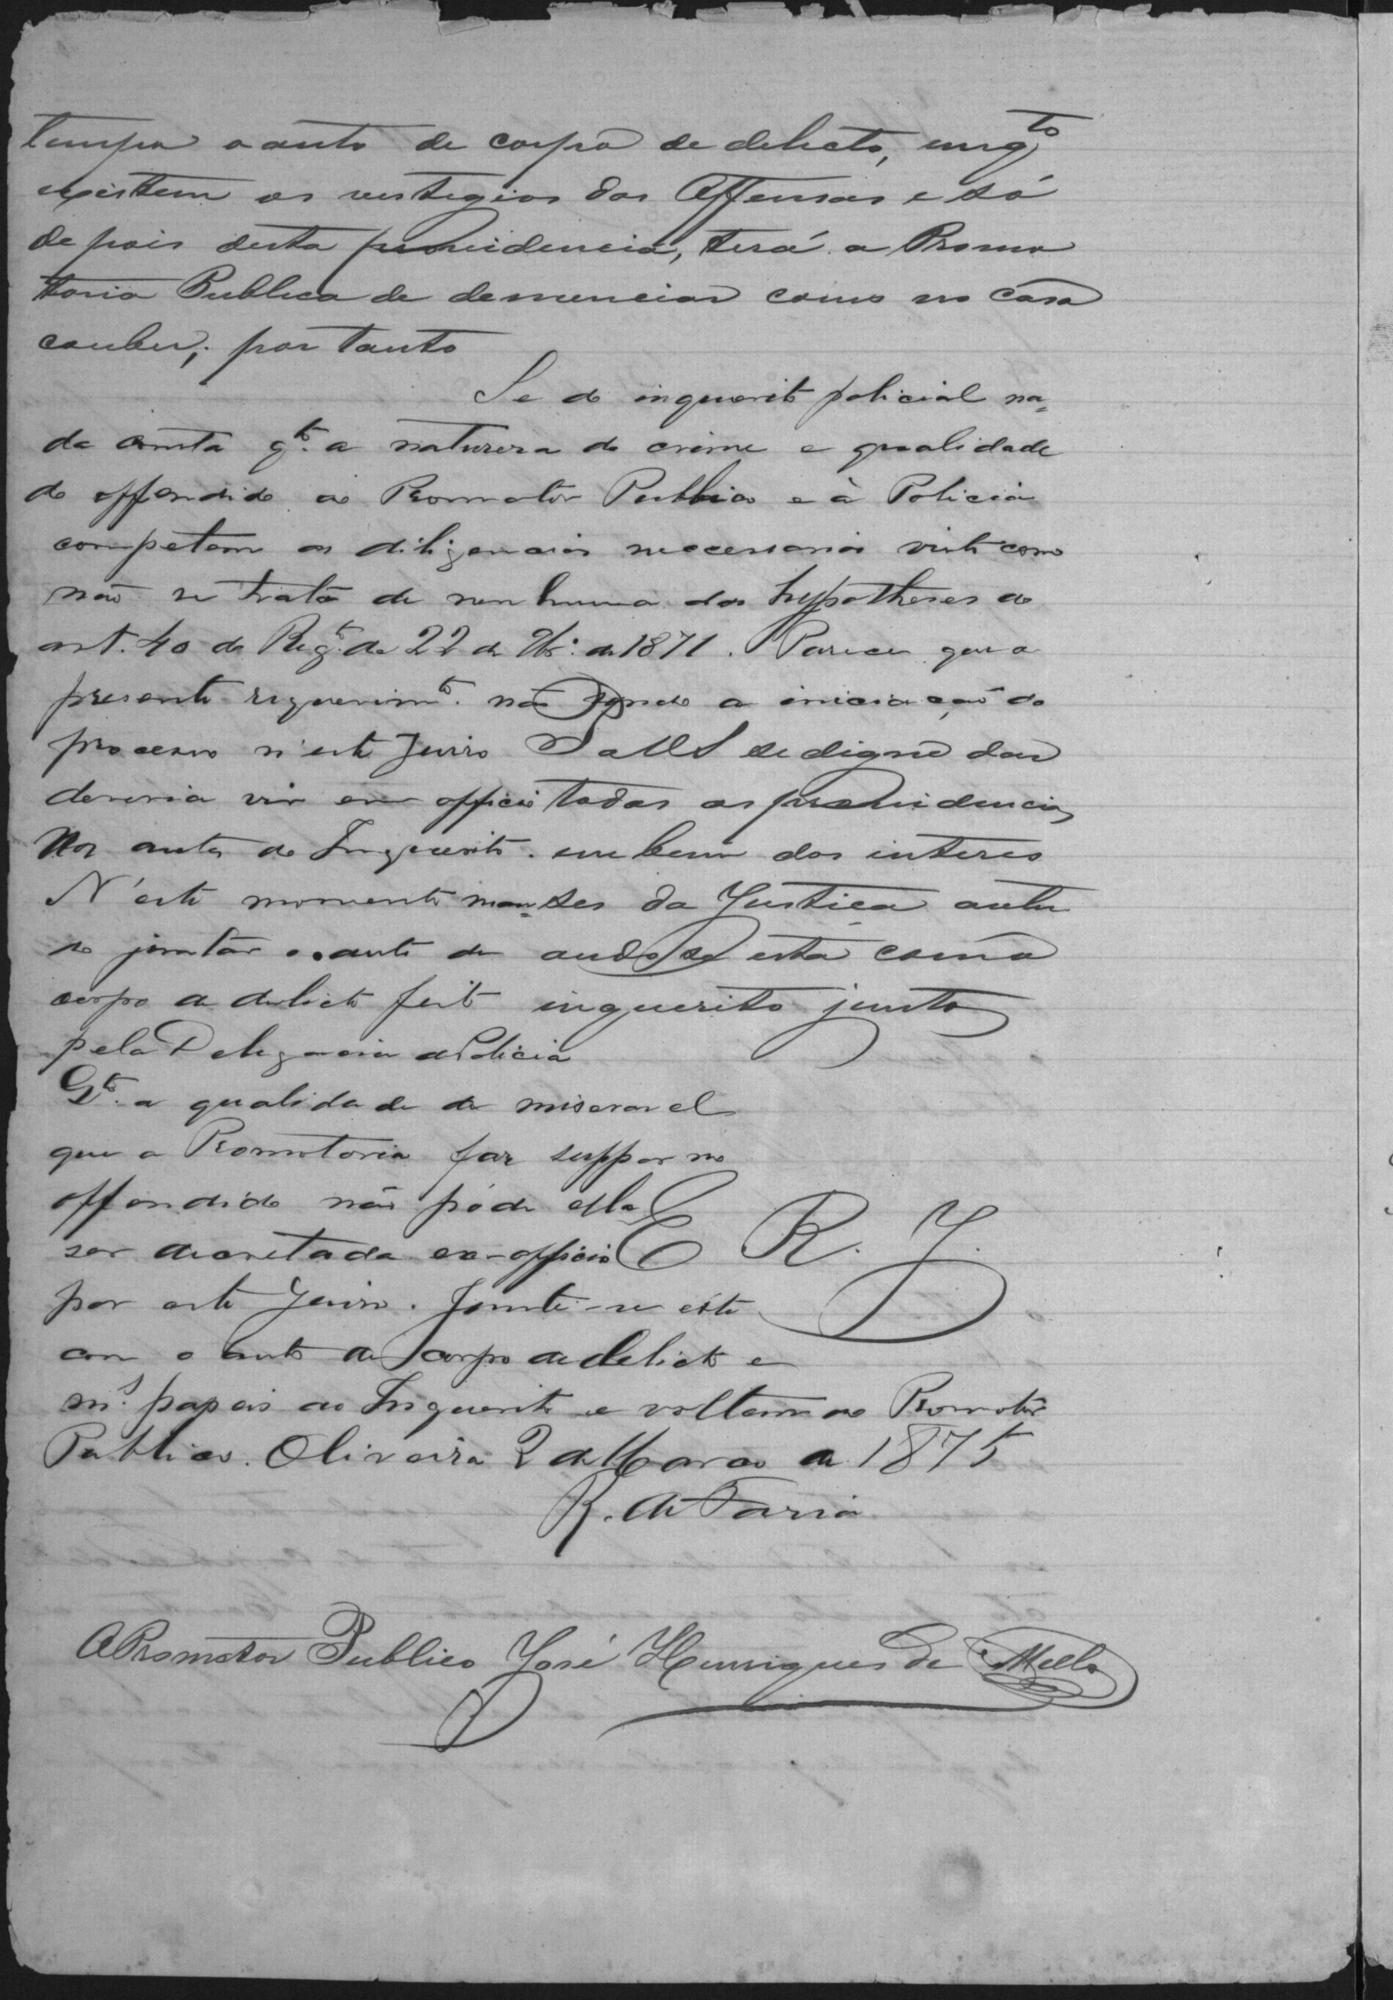 tempo o auto de corpo de delicto, emq.to
existem os vestigios das Offensas e só
depois desta providencia, terá a Promo
toria Publica de denunciar como no caso
couber; por tanto
Se do inquerito policial na=
da consta q.to a natureza do crime e qualidade
do offendido ao Promotor Publico e à Policia
competem as diligencias necessarias visto como
não se trata de nenhuma das hypotheses do
art. 40 do Reg.to de 22 de 9br.o de 1871. Parece que o
presente requerim.to não sendo a iniciação do
processo n'este Juizo P. a V.S. se digne dar
deveria vir em officio todas as providencias
Nos autos do Inquerito. em bem dos interes
N'este momento man= ses da Justiça autu
do juntar o auto de ando-se esta com o
corpo de delicto feito inquerito junto
pela Delegacia de Policia
Q.to a qualidade de miseravel
que a Promotoria faz suppor no
offendido não póde ella
E. R. J.
ser decretada ex-officio
por este Juizo. Junte-se este
com o auto de corpo de delicto e
m.s papeis ao Inquerito e voltem ao Promotor
Publico. Oliveira 2 de Março de 1875
R. de Faria
O Promotor Publico José Henriques de Mello